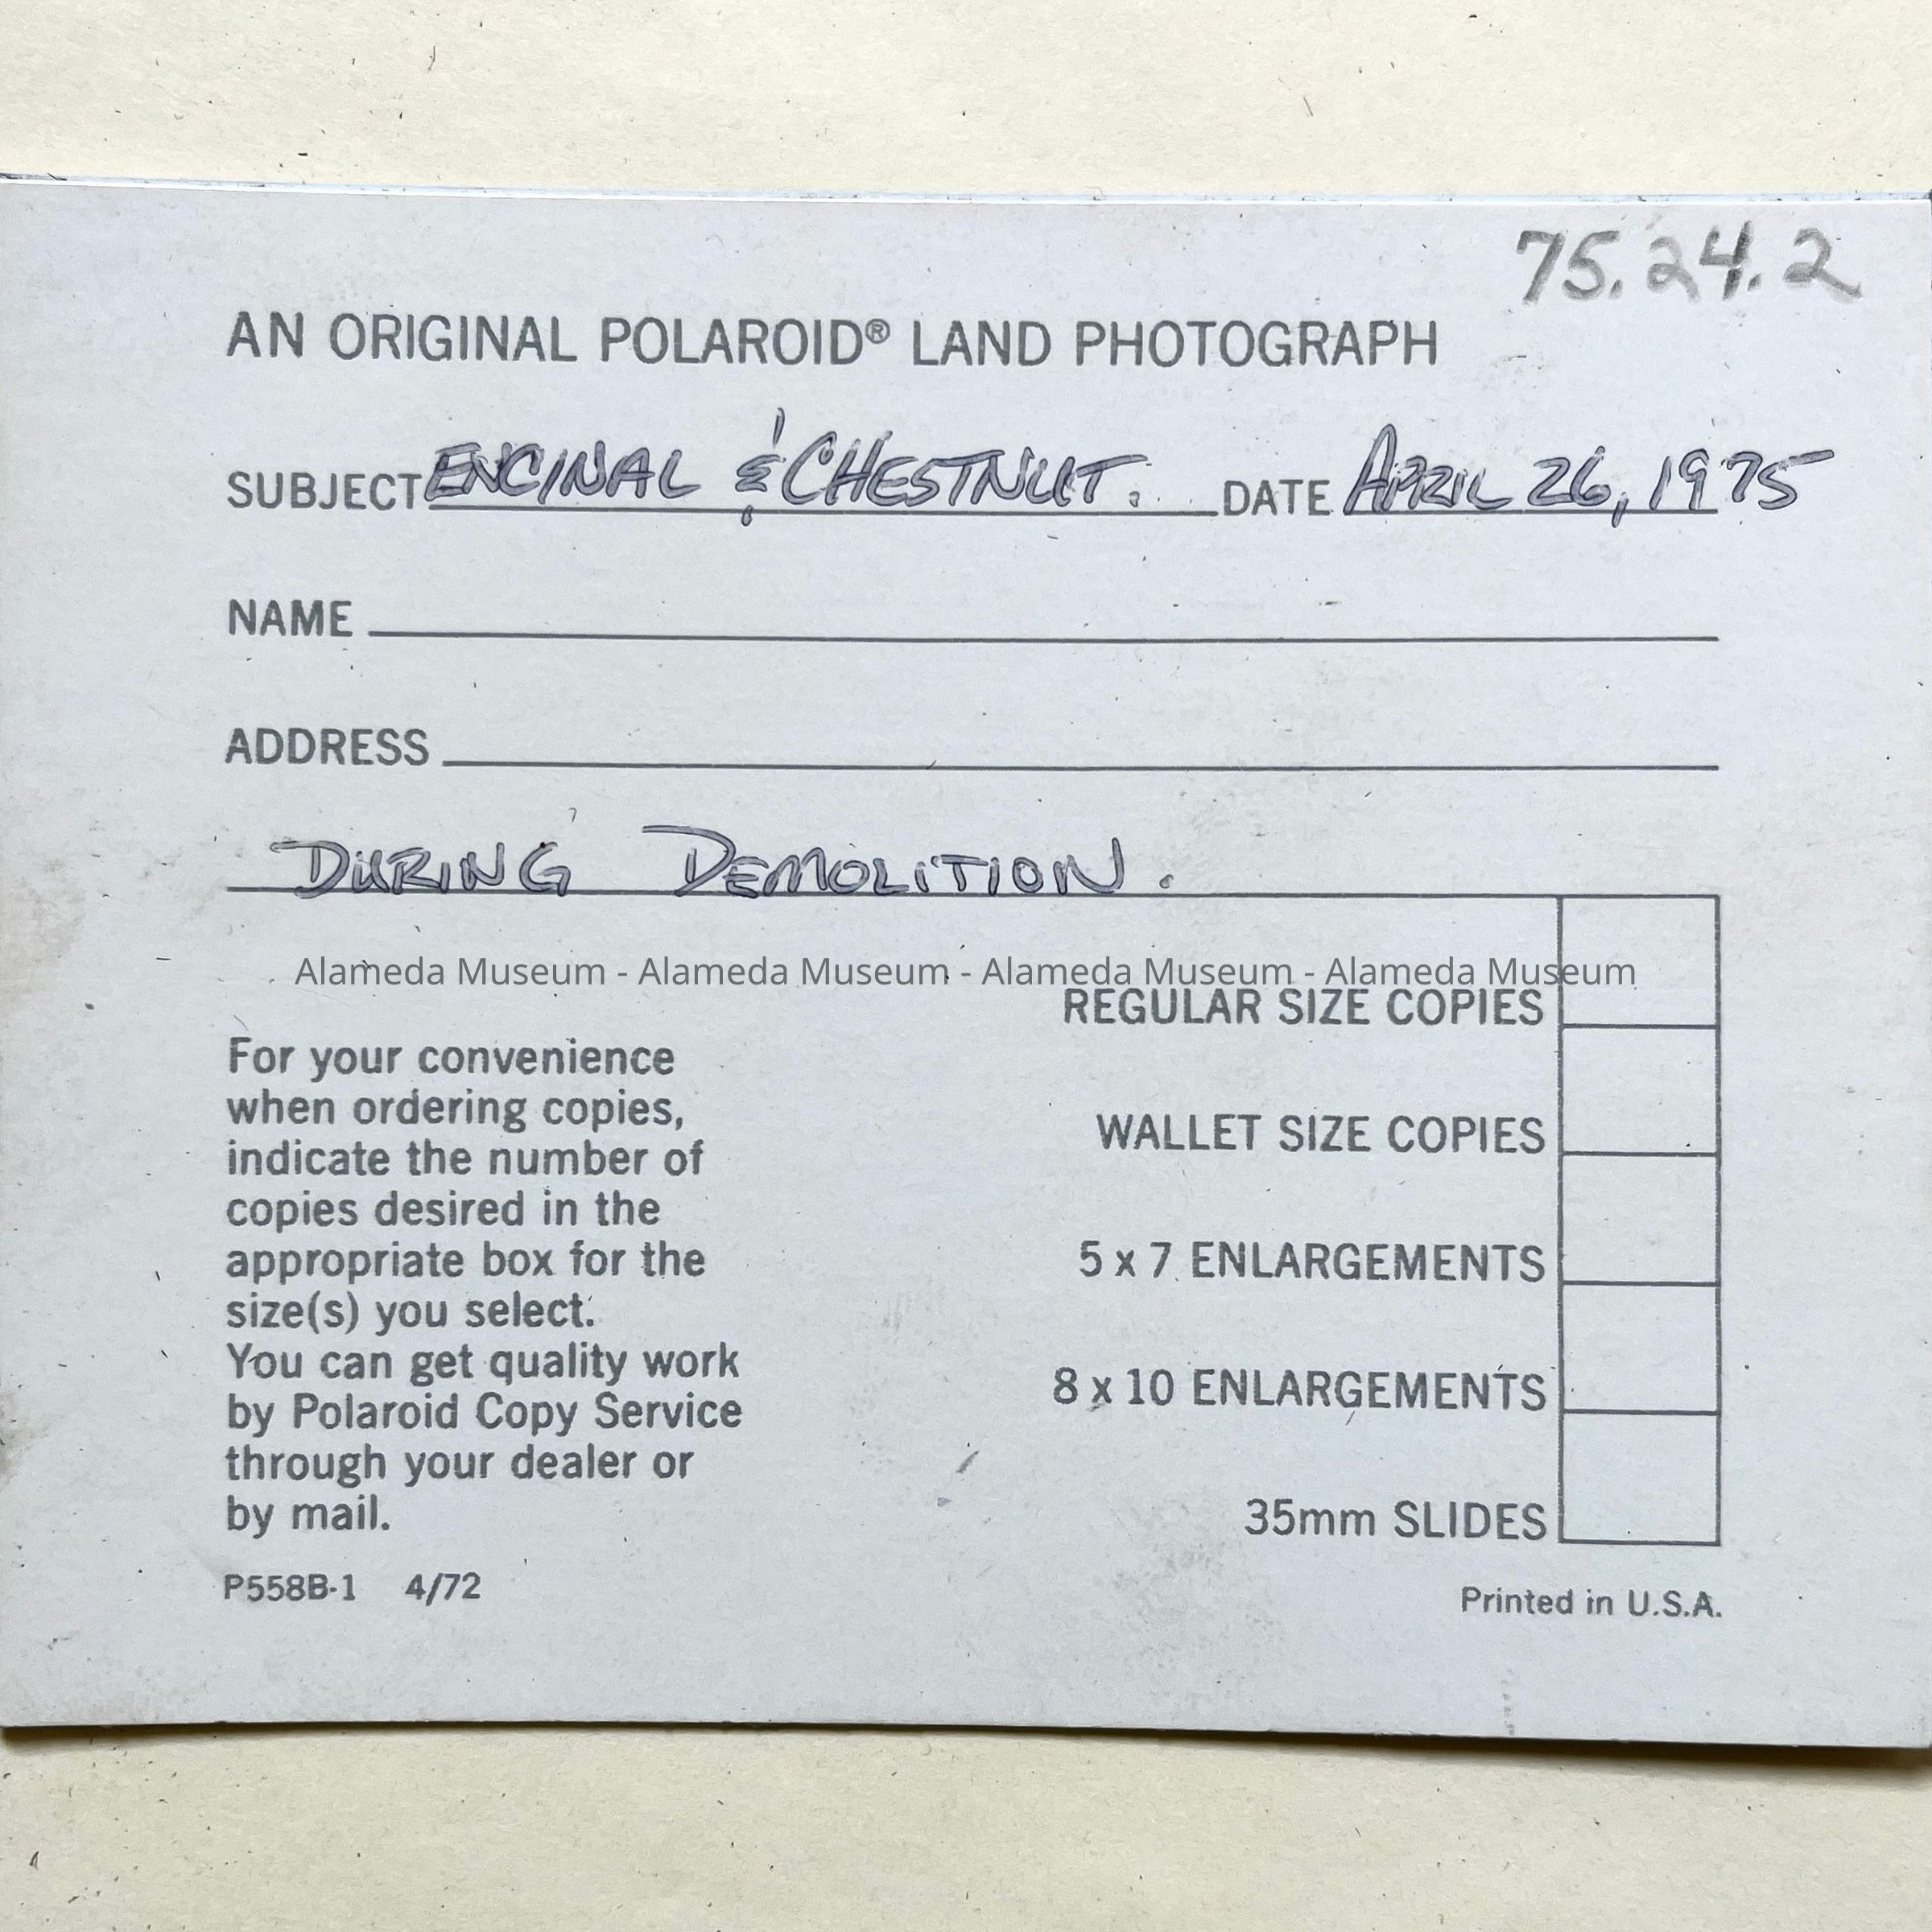 75.24.2
AN ORIGINAL POLAROID® LAND PHOTOGRAPH
SUBJECT ENCINAL & CHESTNUT. DATE APRIL 26, 1975
NAME
ADDRESS
DURING DEMOLITION.
Alameda Museum - Alameda Museum - Alameda Museum - Alameda Museum
REGULAR SIZE COPIES
WALLET SIZE COPIES
5 x 7 ENLARGEMENTS
8 x 10 ENLARGEMENTS
35mm SLIDES
For your convenience
when ordering copies,
indicate the number of
copies desired in the
appropriate box for the
size(s) you select.
You can get quality work
by Polaroid Copy Service
through your dealer or
by mail.
P558B-1 4/72
Printed in U.S.A.